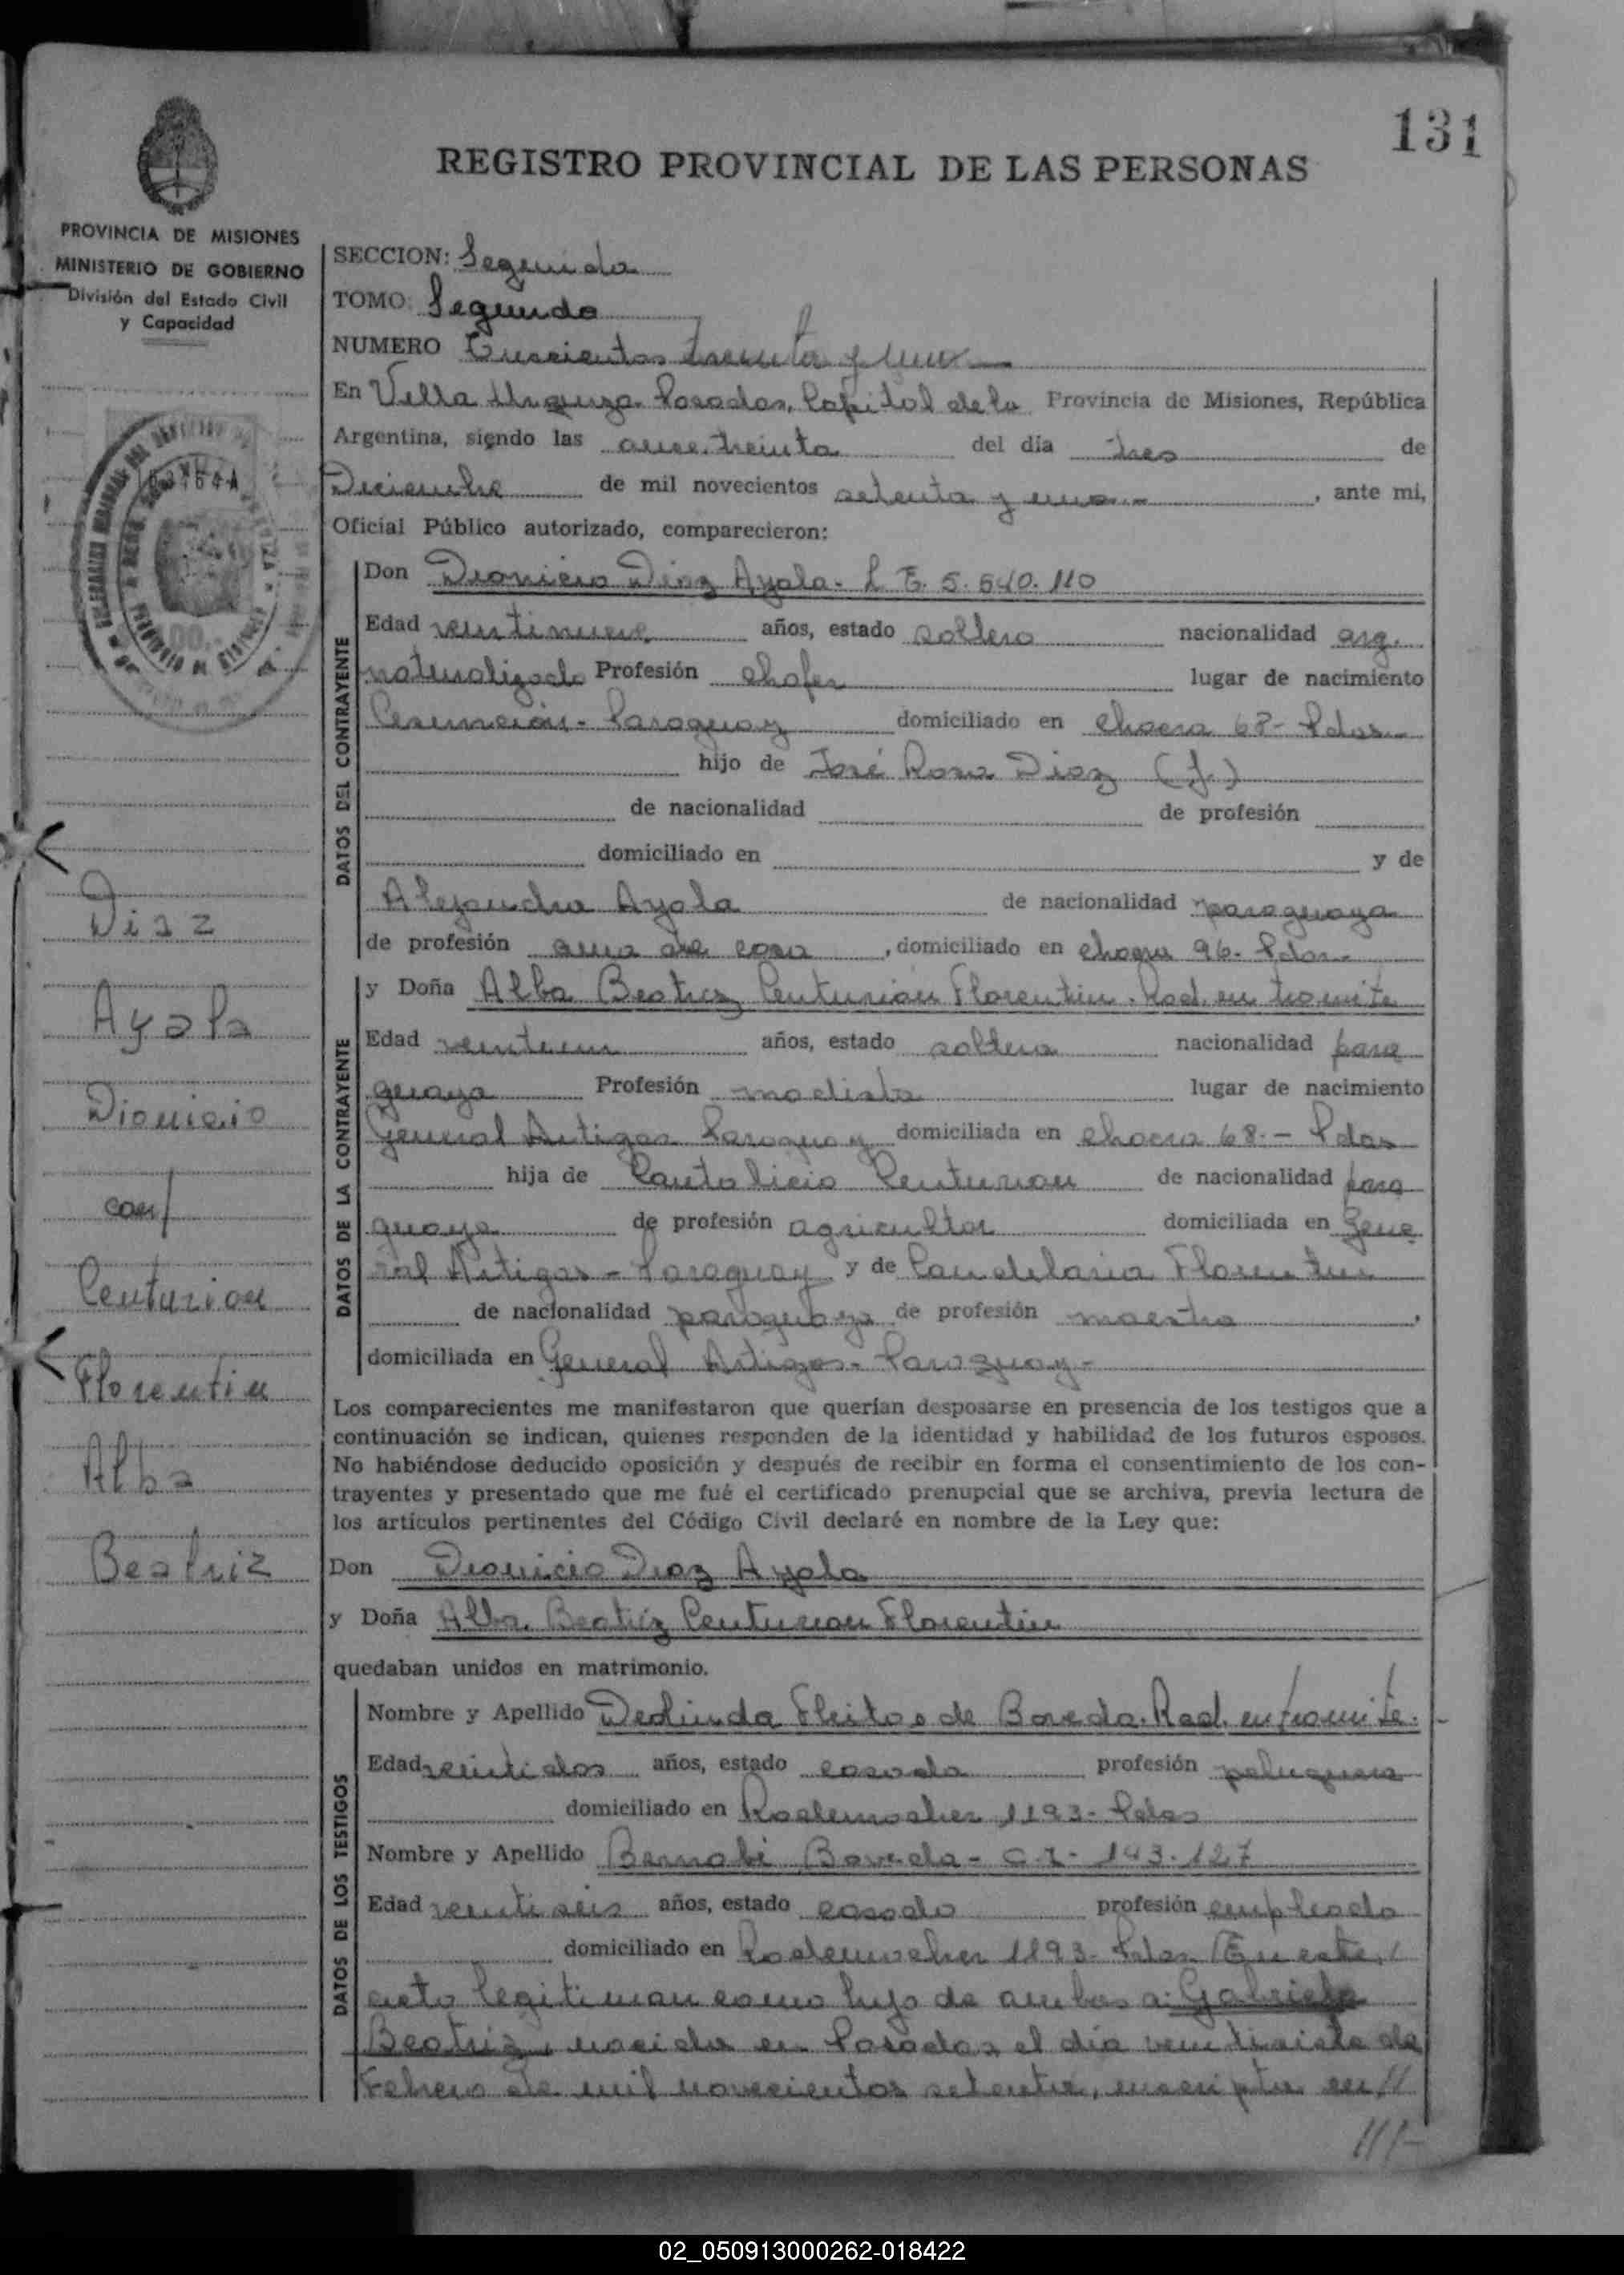 131
REGISTRO PROVINCIAL DE LAS PERSONAS
PROVINCIA DE MISIONES
MINISTERIO DE GOBIERNO
División del Estado Civil
y Capacidad
SECCION: Segunda
TOMO: Segundo
NUMERO treinta y uno
En Villa Urquiza Posadas, Capital de la Provincia de Misiones, República
Argentina, siendo las once treinta del día tres de
Diciembre de mil novecientos setenta y uno, ante mi,
Oficial Público autorizado, comparecieron:
DATOS DEL CONTRAYENTE
Don Dionicio Diaz Ayala - L E. 5.540.110
Edad veintinueve años, estado soltero nacionalidad arg.
naturalizado Profesión chofer lugar de nacimiento
Asunción - Paraguay domiciliado en chacra 68 - Pdas
hijo de José Rosa Diaz (f.)
de nacionalidad de profesión
domiciliado en y de
Alejandra Ayala de nacionalidad paraguaya
de profesión ama de casa, domiciliado en chacra 96 - Pdas
DATOS DE LA CONTRAYENTE
y Doña Alba Beatriz Centurion Florentin. Rad. en tramite
Edad veintiun años, estado soltera nacionalidad para
guaya Profesión modista lugar de nacimiento
General Artigas Paraguay domiciliada en chacra 68 - Pdas
hija de Pantalicio Centurion de nacionalidad para
guaya de profesión agricultor domiciliada en Gene
ral Artigas - Paraguay y de Candelaria Florentin
de nacionalidad paraguaya de profesión maestra,
domiciliada en General Artigas - Paraguay -
Los comparecientes me manifestaron que querían desposarse en presencia de los testigos que a
continuación se indican, quienes responden de la identidad y habilidad de los futuros esposos.
No habiéndose deducido oposición y después de recibir en forma el consentimiento de los con-
trayentes y presentado que me fué el certificado prenupcial que se archiva, previa lectura de
los artículos pertinentes del Código Civil declaré en nombre de la Ley que:
Don Dionicio Diaz Ayala
y Doña Alba Beatriz Centurion Florentin
quedaban unidos en matrimonio.
DATOS DE LOS TESTIGOS
Nombre y Apellido Deolinda Fleitas de Boveda. Rad. en tramite.
Edad veintidos años, estado casada profesión peluquera
domiciliado en Rademacher 1193 - Pdas
Nombre y Apellido Bernabé Boveda - C.I. 143.127
Edad veintiseis años, estado casado profesión empleado
domiciliado en Rademacher 1193 - Pdas (En este
acto legitiman como hija de ambos a: Gabriela
Beatriz, nacida en Posadas el día veintisiete de
Febrero de mil novecientos setenta, inscripta en //
///-
Diaz
Ayala
Dionicio
con/
Centurion
Florentin
Alba
Beatriz
02_050913000262-018422